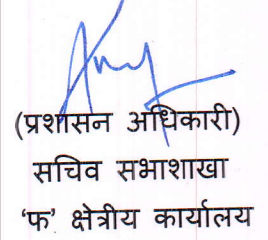 (प्रशासन अधिकारी)
सचिव सभाशाखा
‘फ’ क्षेत्रीय कार्यालय